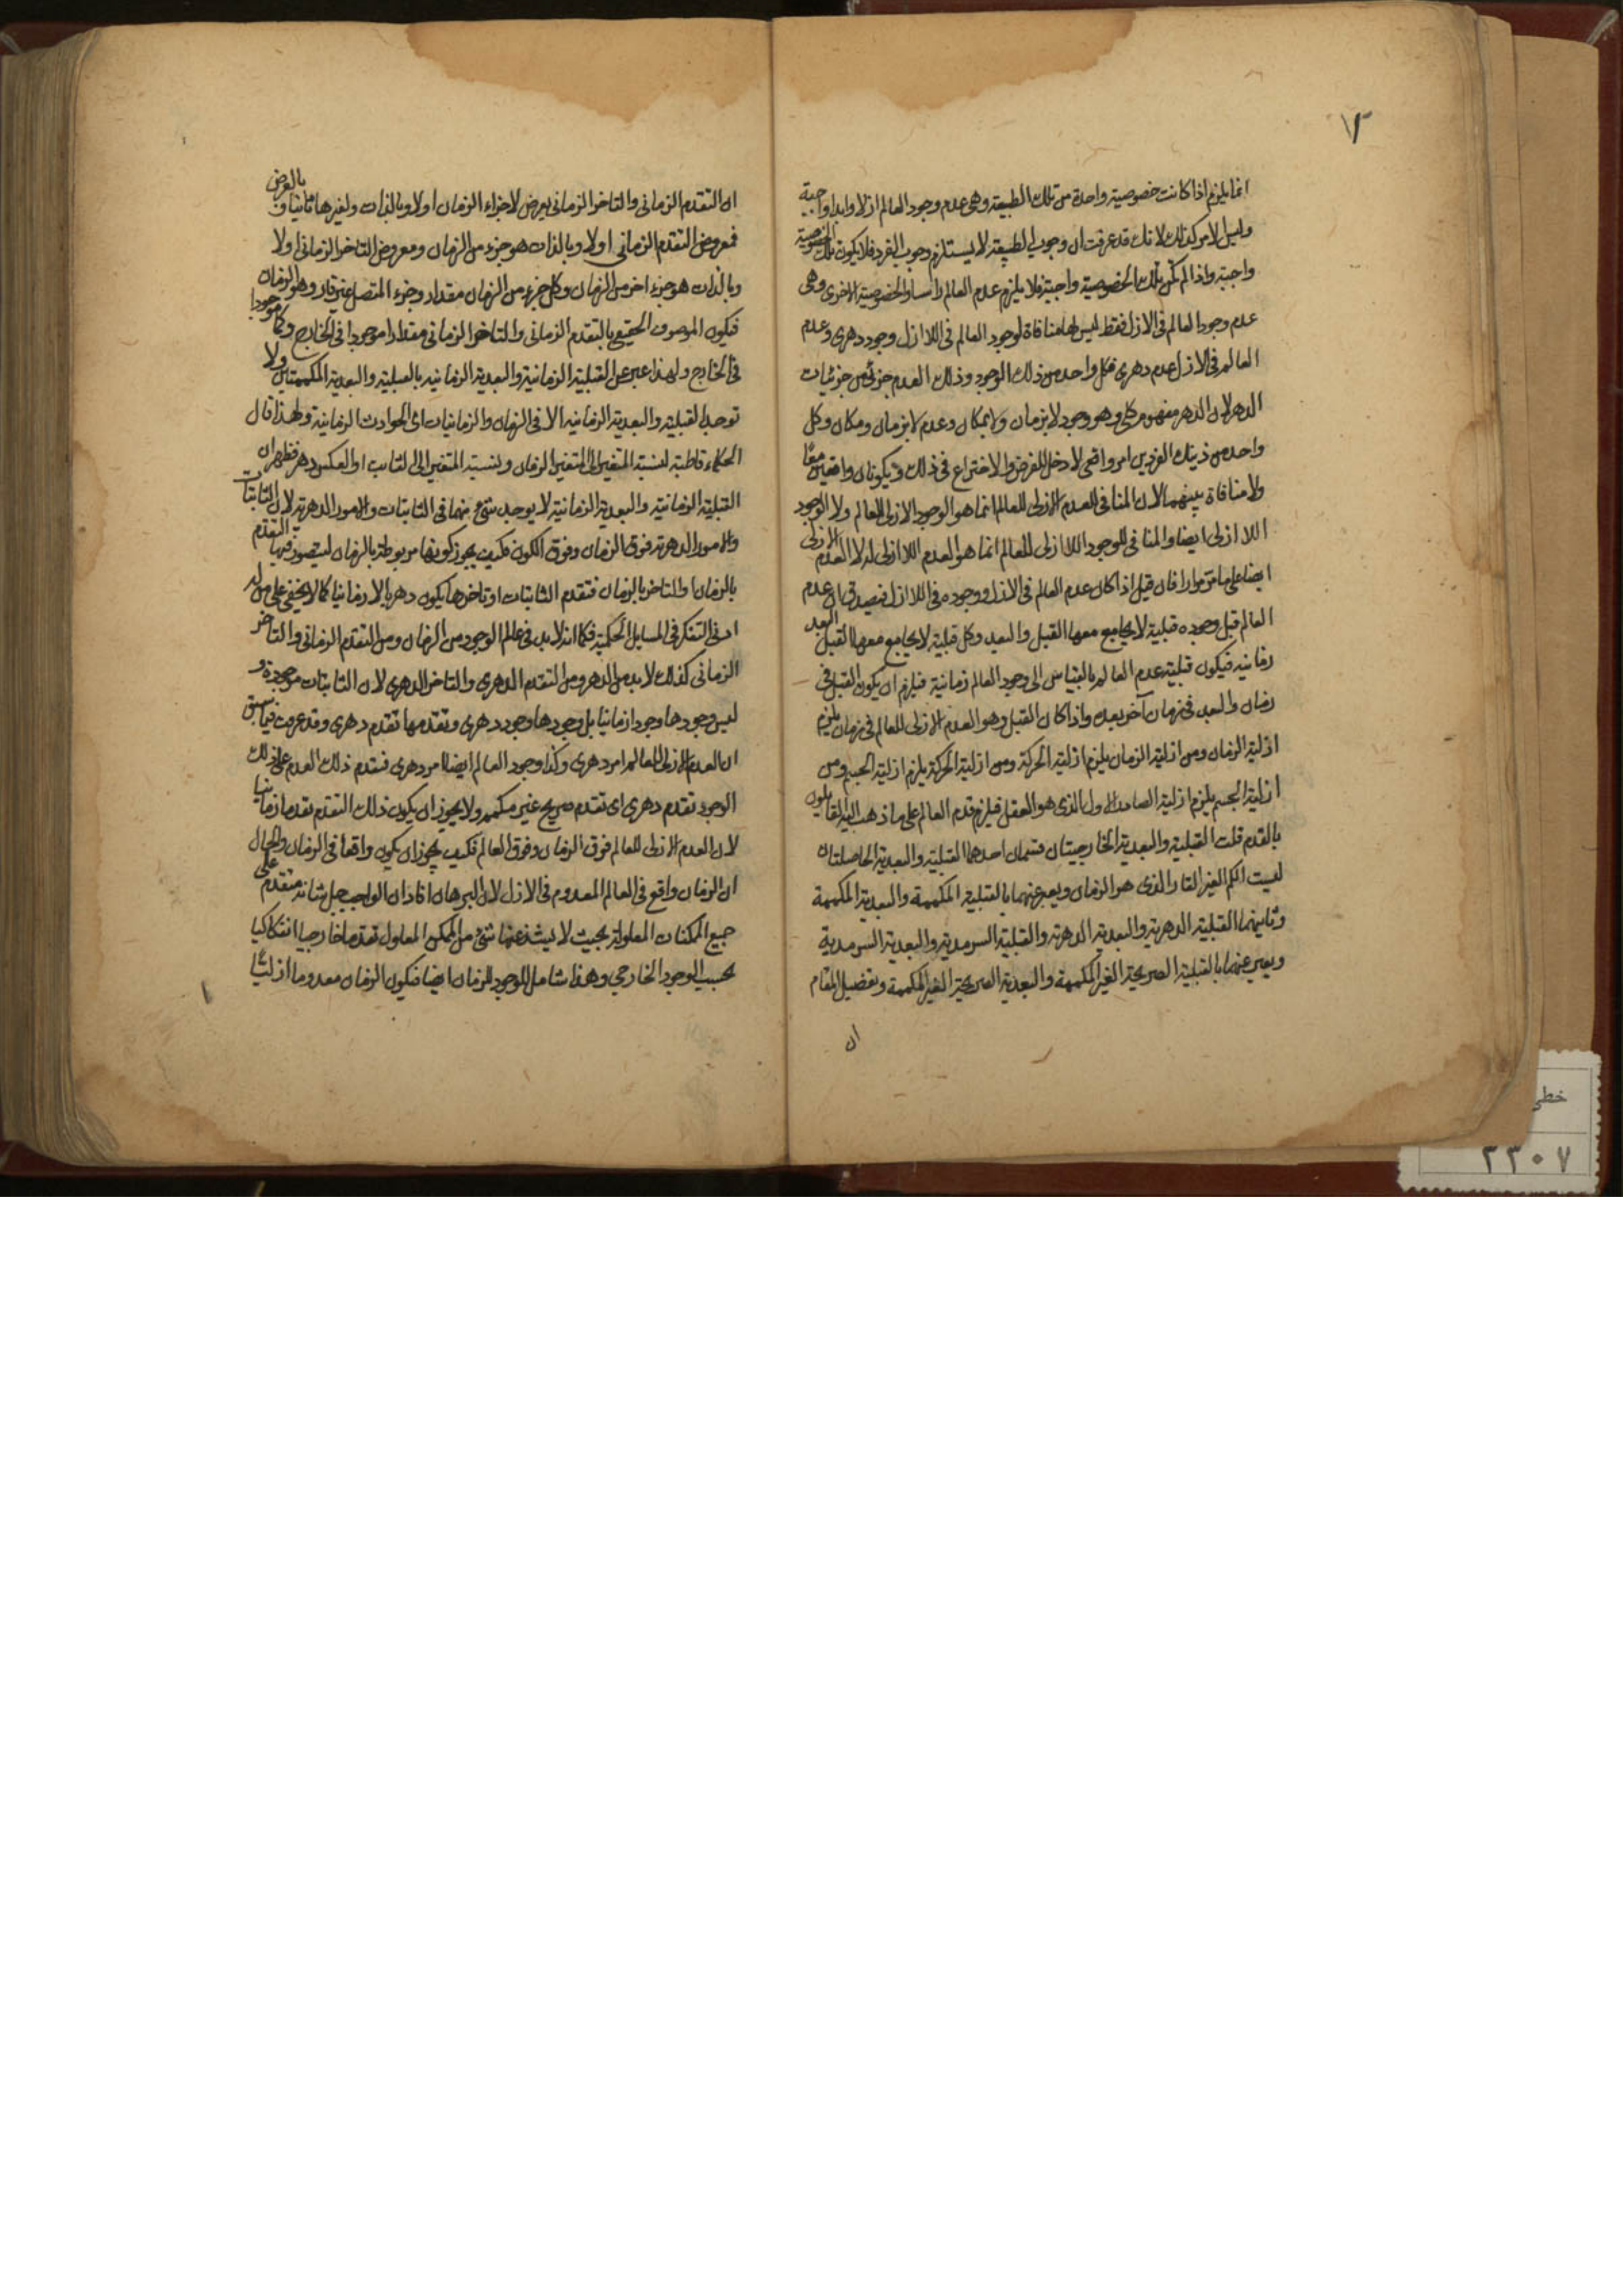 ١٢
انما يلزم اذا كانت خصوصية واحدة من تلك الطبيعة وهى عدم وجود العالم ازلا وابدا واجبة
وليس الامر كذلك لانك قد عرفت ان وجوب الطبيعة لا يستلزم وجوب الفرد فلا يكون تلك الخصوصية
واجبة واذا لم تكن تلك الخصوصية واجبة فلا يلزم عدم العالم راسا والخصوصية الاخرى وهى
عدم وجود العالم فى الازل فقط ليس لها منافاة لوجود العالم فى اللا ازل وجود دهرى وعدم
العالم فى الازل عدم دهرى فكل واحد من ذلك الوجود وذلك العدم جزئى من جزئيات
الدهر لان الدهر مفهوم كلى وهو وجود لا بزمان ولا بمكان وعدم لا بزمان ومكان وكل
واحد من ذينك الفردين امر واقعى لا دخل للفرض والاختراع فى ذلك فيكونان واقعين معًا
ولا منافاة بينهما لان المنافى للعدم الازلى للعالم انما هو الوجود الازلى للعالم ولا الوجود
اللا ازلى ايضا والمنافى للوجود اللا ازلى للعالم انما هو العدم اللا ازلى له لا العدم الازلى
ايضا على ما مر مرارا فان قيل اذا كان عدم العالم فى الازل ووجوده فى اللا ازل فيصدق ان عدم
العالم قبل وجوده قبلية لا يجامع معها القبل والبعد وكل قبلية لا يجامع معها القبل البعد
زمانية فيكون قبلية عدم العالم بالقياس الى وجود العالم زمانية فيلزم ان يكون القبل فى
زمان والبعد فى زمان آخر بعده واذا كان القبل وهو العدم الازلى للعالم فى زمان يلزم
ازلية الزمان ومن ازلية الزمان يلزم ازلية الحركة ومن ازلية الحركة يلزم ازلية الجسم ومن
ازلية الجسم يلزم ازلية الصادر الاول الذى هو العقل فيلزم قدم العالم على ما ذهب اليه القايلون
بالقدم قلت القبلية والبعدية الخارجيتان قسمان احدهما القبلية والبعدية الحاصلتان
لسبب الكم الغير القار الذى هو الزمان ويعبر عنهما بالقبلية المكممة والبعدية المكممة
وثانيهما القبلية الدهرية والبعدية الدهرية والقبلية السرمدية والبعدية السرمدية
ويعبر عنهما بالقبلية الصريحة الغير المكممة والبعدية الصريحة الغير المكممة وتفصيل المقام
ان
ان التقدم الزمانى والتاخر الزمانى يعرض لاجزاء الزمان اولا وبالذات ولغيرها ثانيا وبالعرض
فمعروض التقدم الزمانى اولا وبالذات هو جزء من الزمان ومعروض التاخر الزمانى اولا
وبالذات هو جزء اخر من الزمان وكل جزء من الزمان مقدار وجزء المتصل غير قار وهو الزمان
فيكون الموصوف الحقيقى بالتقدم الزمانى والتاخر الزمانى مقدارا موجودا فى الخارج وكما موجودا
فى الخارج ولهذا عبر عن القبلية الزمانية والبعدية الزمانية بالقبلية والبعدية المكممتين ولا
توجد القبلية والبعدية الزمانية الا فى الزمان والزمانيات اى الحوادث الزمانية ولهذا قال
الحكماء قاطبة لنسبة المتغير الى المتغير الزمان ولنسبة المتغير الى الثابت او العكس دهر فظهر ان
القبلية الزمانية والبعدية الزمانية لا يوجد شئ منهما فى الثابتات والامور الدهرية لان الثابتات
والامور الدهرية فوق الزمان وفوق الكون فكيف يجوز كونها مربوطة بالزمان ليتصور فيها التقدم
بالزمان او التاخر بالزمان فتقدم الثابتات او تاخرها يكون دهريا لا زمانيا كما لا يخفى على من له
ادنى التفكر فى المسايل الحكمية فكما انه لا بد فى عالم الوجود من الزمان ومن التقدم الزمانى والتاخر
الزمانى كذلك لا بد من الدهر ومن التقدم الدهرى والتاخر الدهرى لان الثابتات موجودة و
ليس وجودها وجودا زمانيا بل وجودها وجود دهرى وتقدمها تقدم دهرى وقد عرفت فيما سبق
ان العدم الازلى للعالم امر دهرى وكذا وجود العالم ايضا امر دهرى فتقدم ذلك العدم على ذلك
الوجود تقدم دهرى اى تقدم صريح غير مكمم ولا يجوز ان يكون ذلك التقدم تقدما زمانيا
لان العدم الازلى للعالم فوق الزمان وفوق العالم فكيف يجوز ان يكون واقعا فى الزمان والحال
ان الزمان واقع فى العالم المعدوم فى الازل لان البرهان افاد ان الواجب جل شانه متقدم على
جميع الممكنات المعلولة بحيث لا يشذ عنها شئ من الممكن المعلول تقدما خارجيا انفكاكيا
بحسب الوجود الخارجي وهذا شامل للوجود للزمان ايضا فيكون الزمان معدوما ازليا
خطی
٢٣٠٧